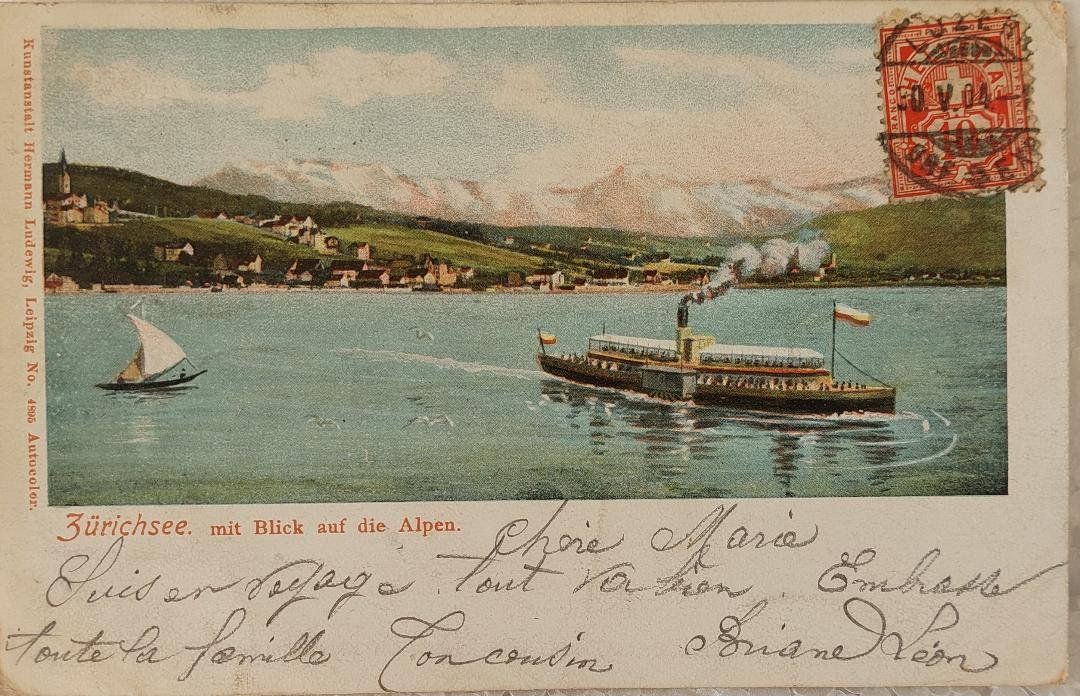 Kunstanstalt Hermann Ludewig, Leipzig No. 4895 Autocolor.
HELVETIA
FRANCO
10
30 V.04
Zürichsee. mit Blick auf die Alpen.
Chère Marie
Suis en voyage. tout va bien. Embrasse
toute la famille Ton cousin Briane Léon